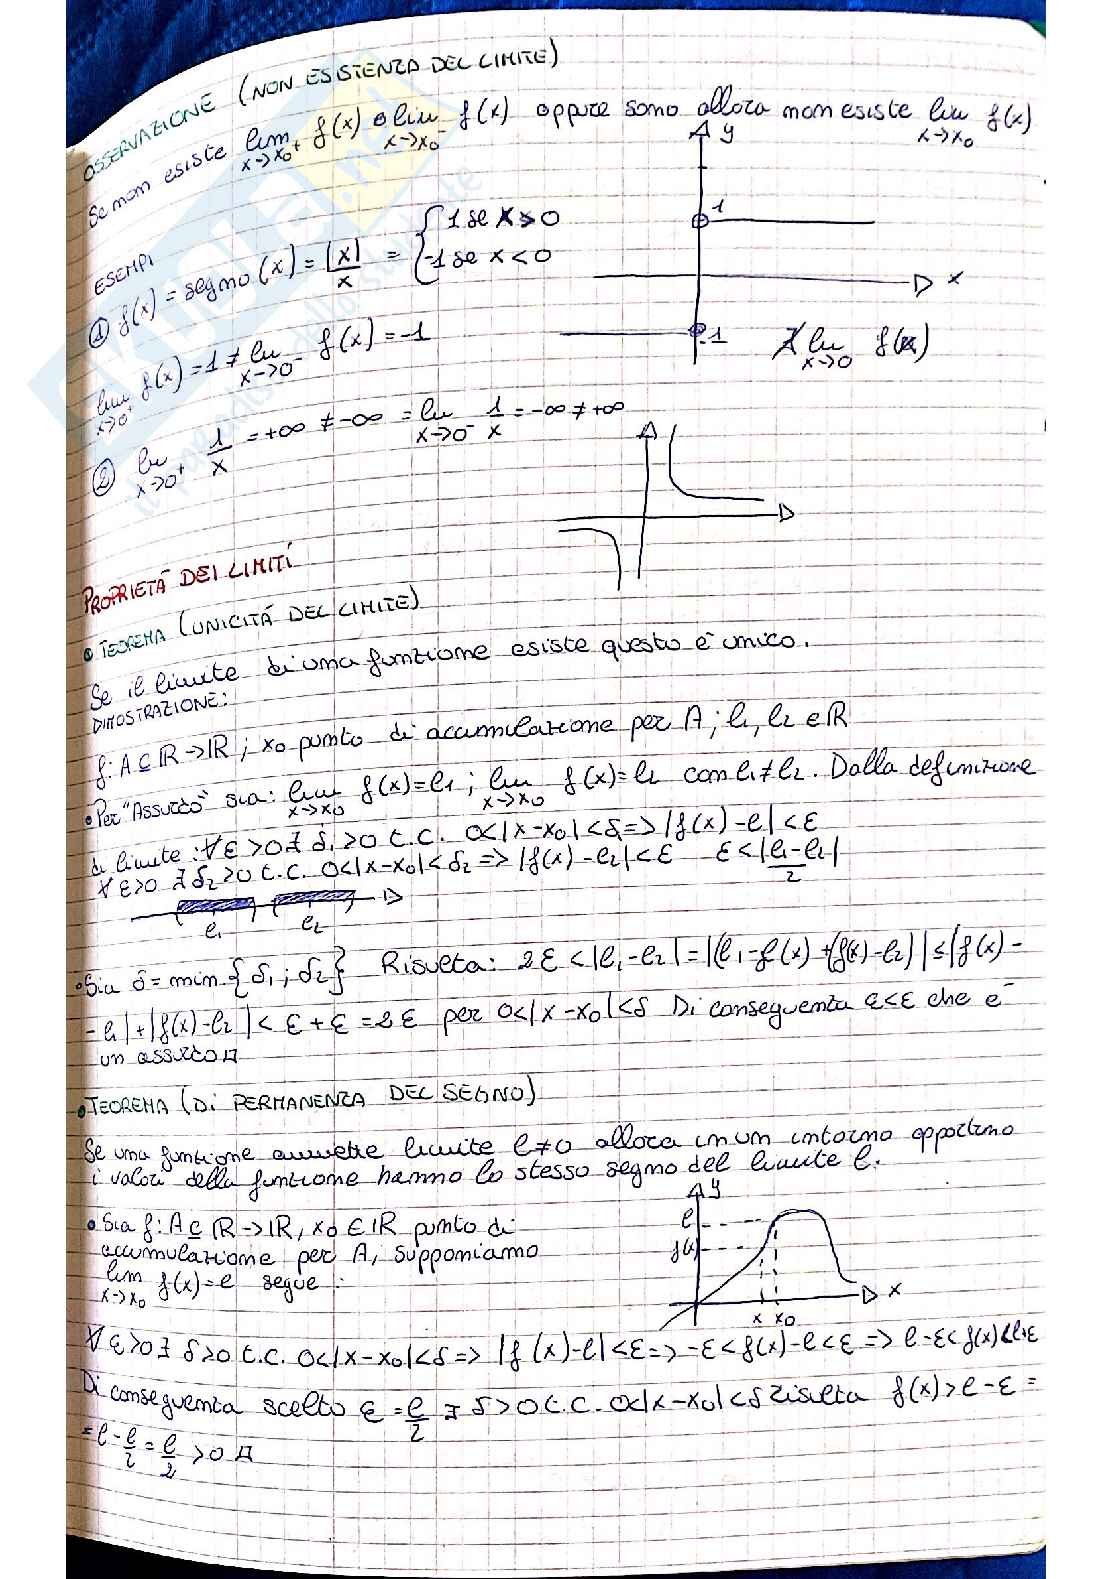 OSSERVAZIONE (NON ESISTENZA DEL LIMITE)
Se non esiste lim x->x₀⁺ f(x) o lim x->x₀⁻ f(x) oppure sono allora non esiste lim x->x₀ f(x)
y
1
x
-1
ESEMPI
① f(x) = segno(x) = |x|/x = { 1 se x > 0
-1 se x < 0
lim x->0⁺ f(x) = 1 ≠ lim x->0⁻ f(x) = -1
∄ lim x->0 f(x)
② lim x->0⁺ 1/x = +∞ ≠ -∞ = lim x->0⁻ 1/x = -∞ ≠ +∞
PROPRIETÁ DEI LIMITI
• TEOREMA (UNICITÁ DEL LIMITE)
Se il limite di una funzione esiste questo è unico.
DIMOSTRAZIONE:
f: A ⊆ ℝ -> ℝ ; x₀ punto di accumulazione per A ; l₁, l₂ ∈ ℝ
• Per "Assurdo" sia: lim x->x₀ f(x) = l₁ ; lim x->x₀ f(x) = l₂ con l₁ ≠ l₂. Dalla definizione
di limite : ∀ε > 0 ∃ δ₁ > 0 t.c. 0<|x-x₀| < δ₁ => |f(x) - l| < ε
∀ε>0 ∃ δ₂>0 t.c. 0<|x-x₀| < δ₂ => |f(x) - l₂| < ε ε < |l₁-l₂|/2
l₁ l₂
• Sia δ = min {δ₁ ; δ₂} Risulta: 2ε < |l₁-l₂| = |(l₁-f(x) + (f(x)-l₂)| ≤ |f(x) -
- l₁| + |f(x)-l₂| < ε + ε = 2ε per 0<|x-x₀|<δ Di conseguenza ε<ε che è
un assurdo □
• TEOREMA (Di PERMANENZA DEL SEGNO)
Se una funzione ammette limite l≠0 allora in un intorno opportuno
i valori della funzione hanno lo stesso segno del limite l.
• Sia f: A ⊆ ℝ -> ℝ, x₀ ∈ ℝ punto di
accumulazione per A, supponiamo
lim x->x₀ f(x) = l segue :
y
l
f(x)
x x₀
x
∀ε>0 ∃ δ>0 t.c. 0<|x-x₀|<δ => |f(x)-l|<ε => -ε<f(x)-l<ε => l-ε<f(x)<l+ε
Di conseguenza scelto ε = l/2 ∃ δ>0 t.c. 0<|x-x₀|<δ risulta f(x)>l-ε =
= l - l/2 = l/2 > 0 □